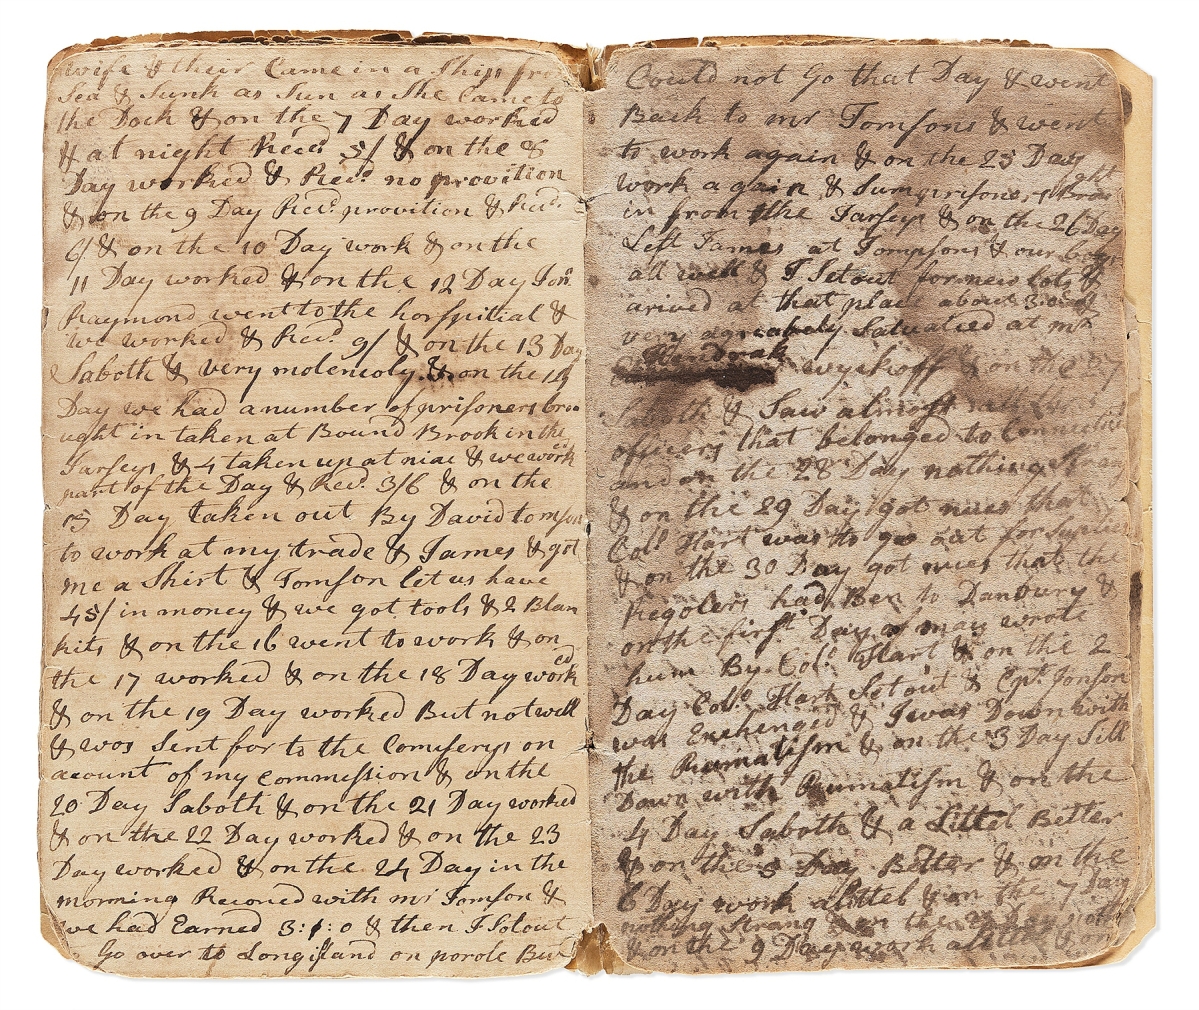 wife & their Came in a Ship fro
Sea & Sunk as Sun as She Came to
the Dock & on the 7 Day worked
& at night Recd 5/ & on the 8
Day worked & Recd. no provition
& on the 9 Day Recd. provition & Recd.
6/ & on the 10 Day work & on the
11 Day worked & on the 12 Day Jon.
Raymond went to the horspitial &
we worked & Recd. 9/ & on the 13 Day
Saboth & very molencoly & on the 14
Day we had a number of prisoners bro
ught in taken at Bound Brook in the
Jarseys & 4 taken up at niac & we worked
part of the Day & Recd. 3/6 & on the
15 Day taken out By David tomson
to work at my trade & James & got
me a Shirt & Tomson let us have
45/ in money & we got tools & 2 Blan
kits & on the 16 went to work & on
the 17 worked & on the 18 Day worked
& on the 19 Day worked But not well
& wos Sent for to the Comserys on
acount of my commission & on the
20 Day Saboth & on the 21 Day worked
& on the 22 Day worked & on the 23
Day worked & on the 24 Day in the
morning Reconed with mr Tomson &
we had Earned 3:1:0 & then I Sot out
Go over to Longisland on porole But
Could not Go that Day & went
Back to mr Tomsons & went
to work again & on the 25 Day
work again & Sum prisone
in from the Jarseys & on the 26 Day
Left James at Tompsons & our boys
all well & I Sot out for new lots &
arived at that place about 3
very agreabely Saluatied at mr
Hendrak wyckoff & on the 27
Saboth & Saw almost all the
officers that belonged to Connecticut
and on the 28 Day nothing Strang
& on the 29 Day got nues that
Coll. Hart was to go out for
& on the 30 Day got nues that the
Regolers had Ben to Danbury &
on the first Day of may wrote
hum By Coll. Hart & on the 2
Day Coll. Hart Sot out & Cpt. Jonson
was Exchenged & I was Down with
the Rumatism & on the 3 Day Sill
Down with Rumatism & on the
4 Day Saboth & a Littel Better
& on the 5 Day Better & on the
6 Day work a littel & on the 7 Day
nothing Strang & on the 8 Day
& on the 9 Day work a littel & on